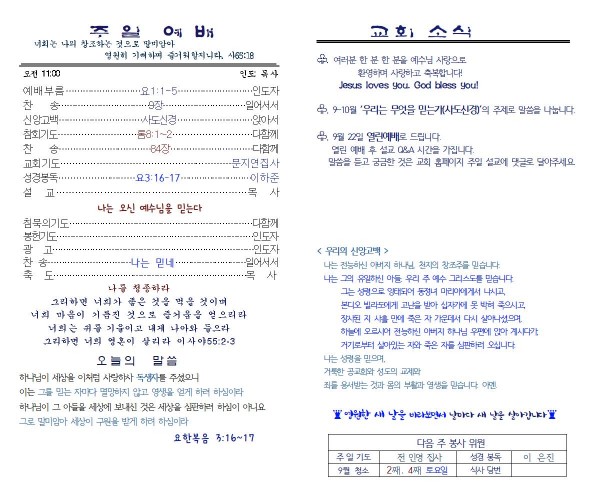 주 일 예 배
너희는 나의 창조하는 것으로 말미암아
영원히 기뻐하며 즐거워할지니라. 사65:18
오전 11:00 인도 목사
예배부름 요1:1-5 인도자
찬 송 9장 일어서서
신앙고백 사도신경 앉아서
참회기도 롬8:1~2 다함께
찬 송 84장 다함께
교회기도 문지연집사
성경봉독 요3:16-17 이하준
설 교 목 사
나는 오신 예수님을 믿는다
침묵의기도 다함께
봉헌기도 인도자
광 고 인도자
찬 송 나는 믿네 일어서서
축 도 목 사
나를 청종하라
그리하면 너희가 좋은 것을 먹을 것이며
너희 마음이 기름진 것으로 즐거움을 얻으리라
너희는 귀를 기울이고 내게 나아와 들으라
그리하면 너희 영혼이 살리라 이사야55:2-3
오늘의 말씀
하나님이 세상을 이처럼 사랑하사 독생자를 주셨으니
이는 그를 믿는 자마다 멸망하지 않고 영생을 얻게 하려 하심이라
하나님이 그 아들을 세상에 보내신 것은 세상을 심판하려 하심이 아니요
그로 말미암아 세상이 구원을 받게 하려 하심이라
요한복음 3:16~17
교회 소식
여러분 한 분 한 분을 예수님 사랑으로
환영하며 사랑하고 축복합니다!
Jesus loves you. God bless you!
9-10월 '우리는 무엇을 믿는가(사도신경)'의 주제로 말씀을 나눕니다.
9월 22일 열린예배로 드립니다.
열린 예배 후 설교 Q&A 시간을 가집니다.
말씀을 듣고 궁금한 것은 교회 홈페이지 주일 설교에 댓글로 달아주세요.
< 우리의 신앙고백 >
나는 전능하신 아버지 하나님, 천지의 창조주를 믿습니다.
나는 그의 유일하신 아들, 우리 주 예수 그리스도를 믿습니다.
그는 성령으로 잉태되어 동정녀 마리아에게서 나시고,
본디오 빌라도에게 고난을 받아 십자가에 못 박혀 죽으시고,
장사된 지 사흘 만에 죽은 자 가운데서 다시 살아나셨으며,
하늘에 오르시어 전능하신 아버지 하나님 우편에 앉아 계시다가,
거기로부터 살아있는 자와 죽은 자를 심판하러 오십니다.
나는 성령을 믿으며,
거룩한 공교회와 성도의 교제와
죄를 용서받는 것과 몸의 부활과 영생을 믿습니다. 아멘.
영원한 새 날을 바라보면서 날마다 새 날을 살아갑니다
다음 주 봉사 위원
주일 기도 전 민영 집사 성경 봉독 이 은진
9월 청소 2째, 4째 토요일 식사 당번